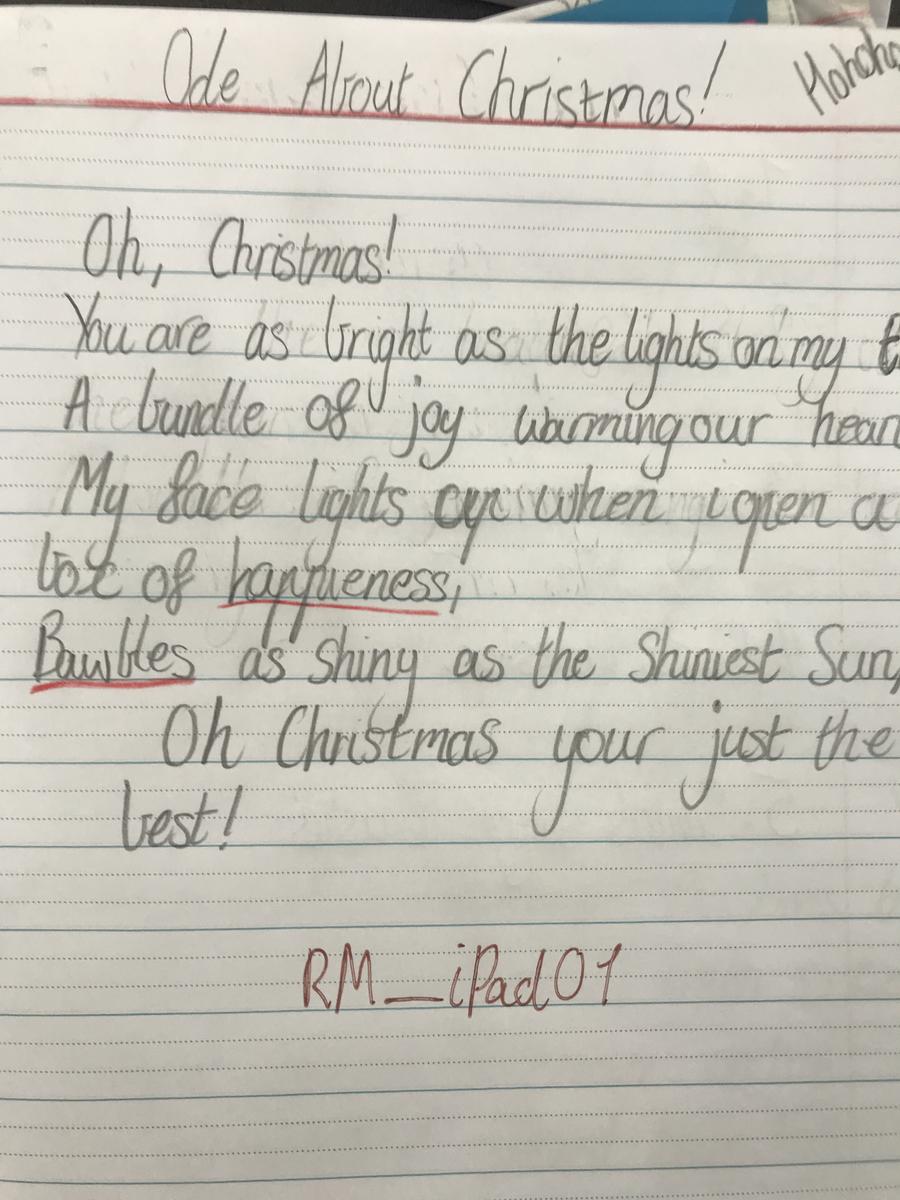 Ode About Christmas! Hohoho
Oh, Christmas!
You are as bright as the lights on my t
A bundle of joy warming our hear
My face lights up when i open a
box of happieness,
Bawbles as shiny as the Shiniest Sun,
Oh Christmas your just the
best!
RM_iPad01